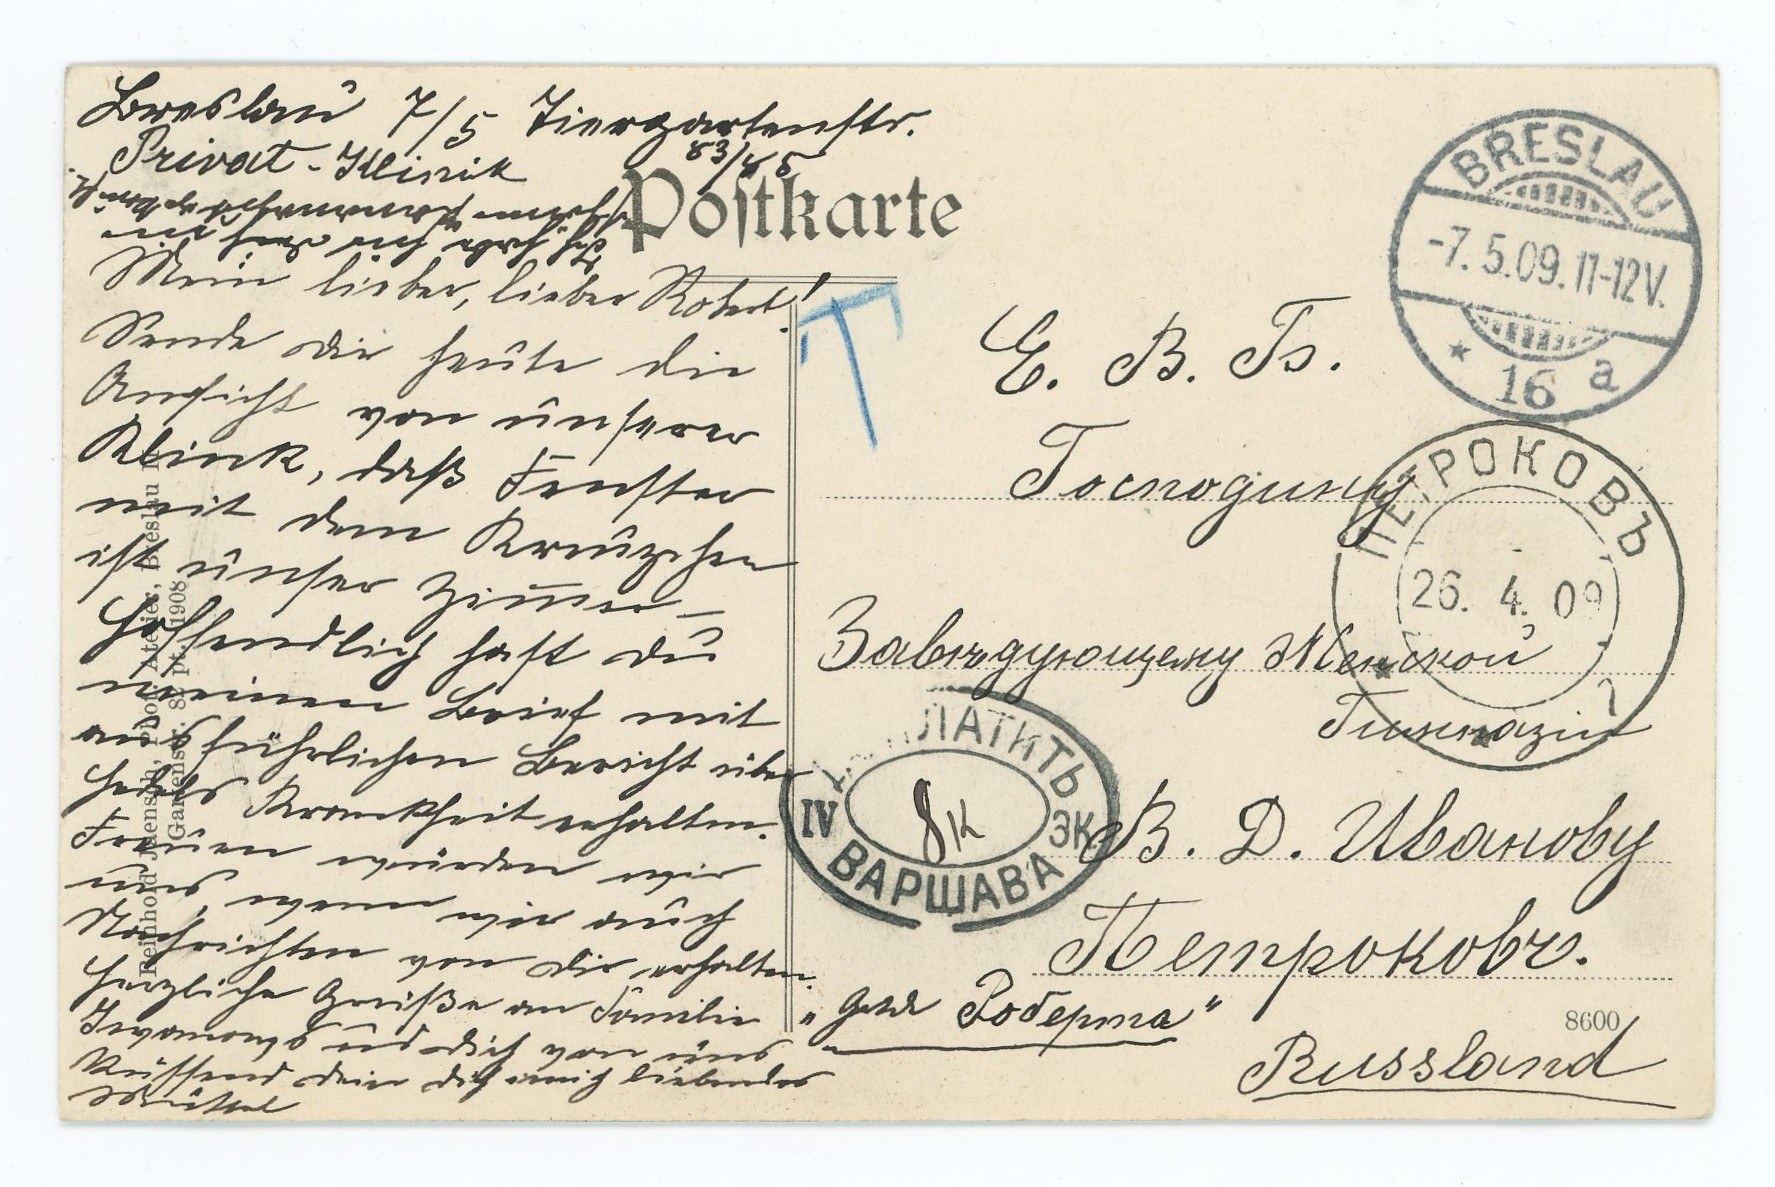 Breslau 7/5 Tiergartenstr.
83/85
Privat-Klinik
Postkarte
Mein lieber, lieber Robert!
Sende dir heute die
Ansicht von unserer
Klinik, daß Fenster
mit dem Kreuzchen
ist unser Zimmer
Hoffendlich hast du
meinen Brief mit
ausführlichen Bericht über
Krankheit erhalten.
Freuen würden wir
uns, wenn wir auch
Nachrichten von dir erhalten.
Herzliche Grüße an Familie
Iwanows und dich von uns
Küssend dein dich innig liebendes
BRESLAU
-7.5.09.11-12V.
* 16 a
Т
Е. В. Гб.
Господину
Завѣдующему Женской
Гимназіи
В. Д. Иванову
Петроковъ.
"для Роберта"
Russland
ПЕТРОКОВЪ
26. 4. 09
1
ДОПЛАТИТЬ
IV 8к ЭК
ВАРШАВА
8600
Reinhold Jaensch, Photo-Atelier, Breslau
Gartenstr. 8 pt. 1908